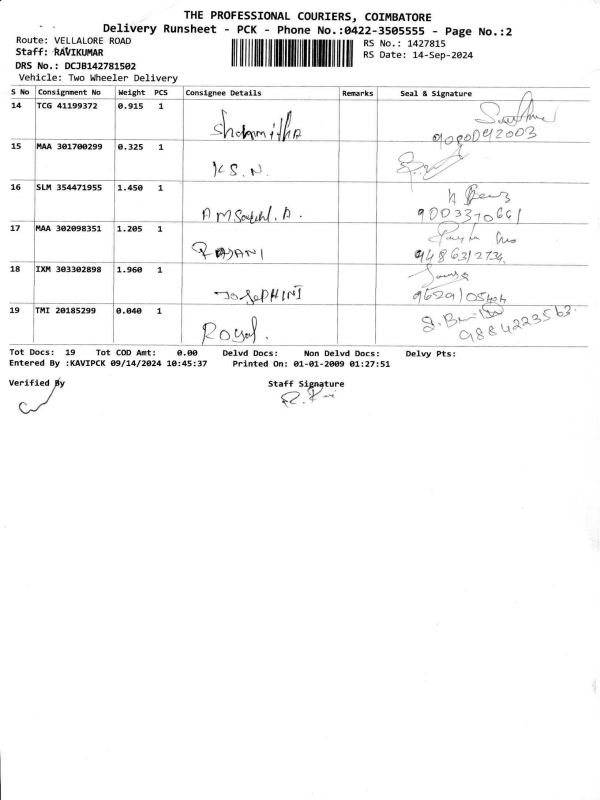 THE PROFESSIONAL COURIERS, COIMBATORE
Delivery Runsheet - PCK - Phone No.:0422-3505555 - Page No.:2
Route: VELLALORE ROAD
RS No.: 1427815
Staff: RAVIKUMAR
RS Date: 14-Sep-2024
DRS No.: DCJB142781502
Vehicle: Two Wheeler Delivery
S No Consignment No Weight PCS Consignee Details Remarks Seal & Signature
14 TCG 41199372 0.915 1
15 MAA 301700299 0.325 1
K.S.N.
16 SLM 354471955 1.450 1
17 MAA 302098351 1.205 1
18 IXM 303302898 1.960 1
JOSEPHINI
19 TMI 20185299 0.040 1
Royal. 9884223563.
Tot Docs: 19 Tot COD Amt: 0.00 Delvd Docs: Non Delvd Docs: Delvy Pts:
Entered By :KAVIPCK 09/14/2024 10:45:37 Printed On: 01-01-2009 01:27:51
Verified By Staff Signature